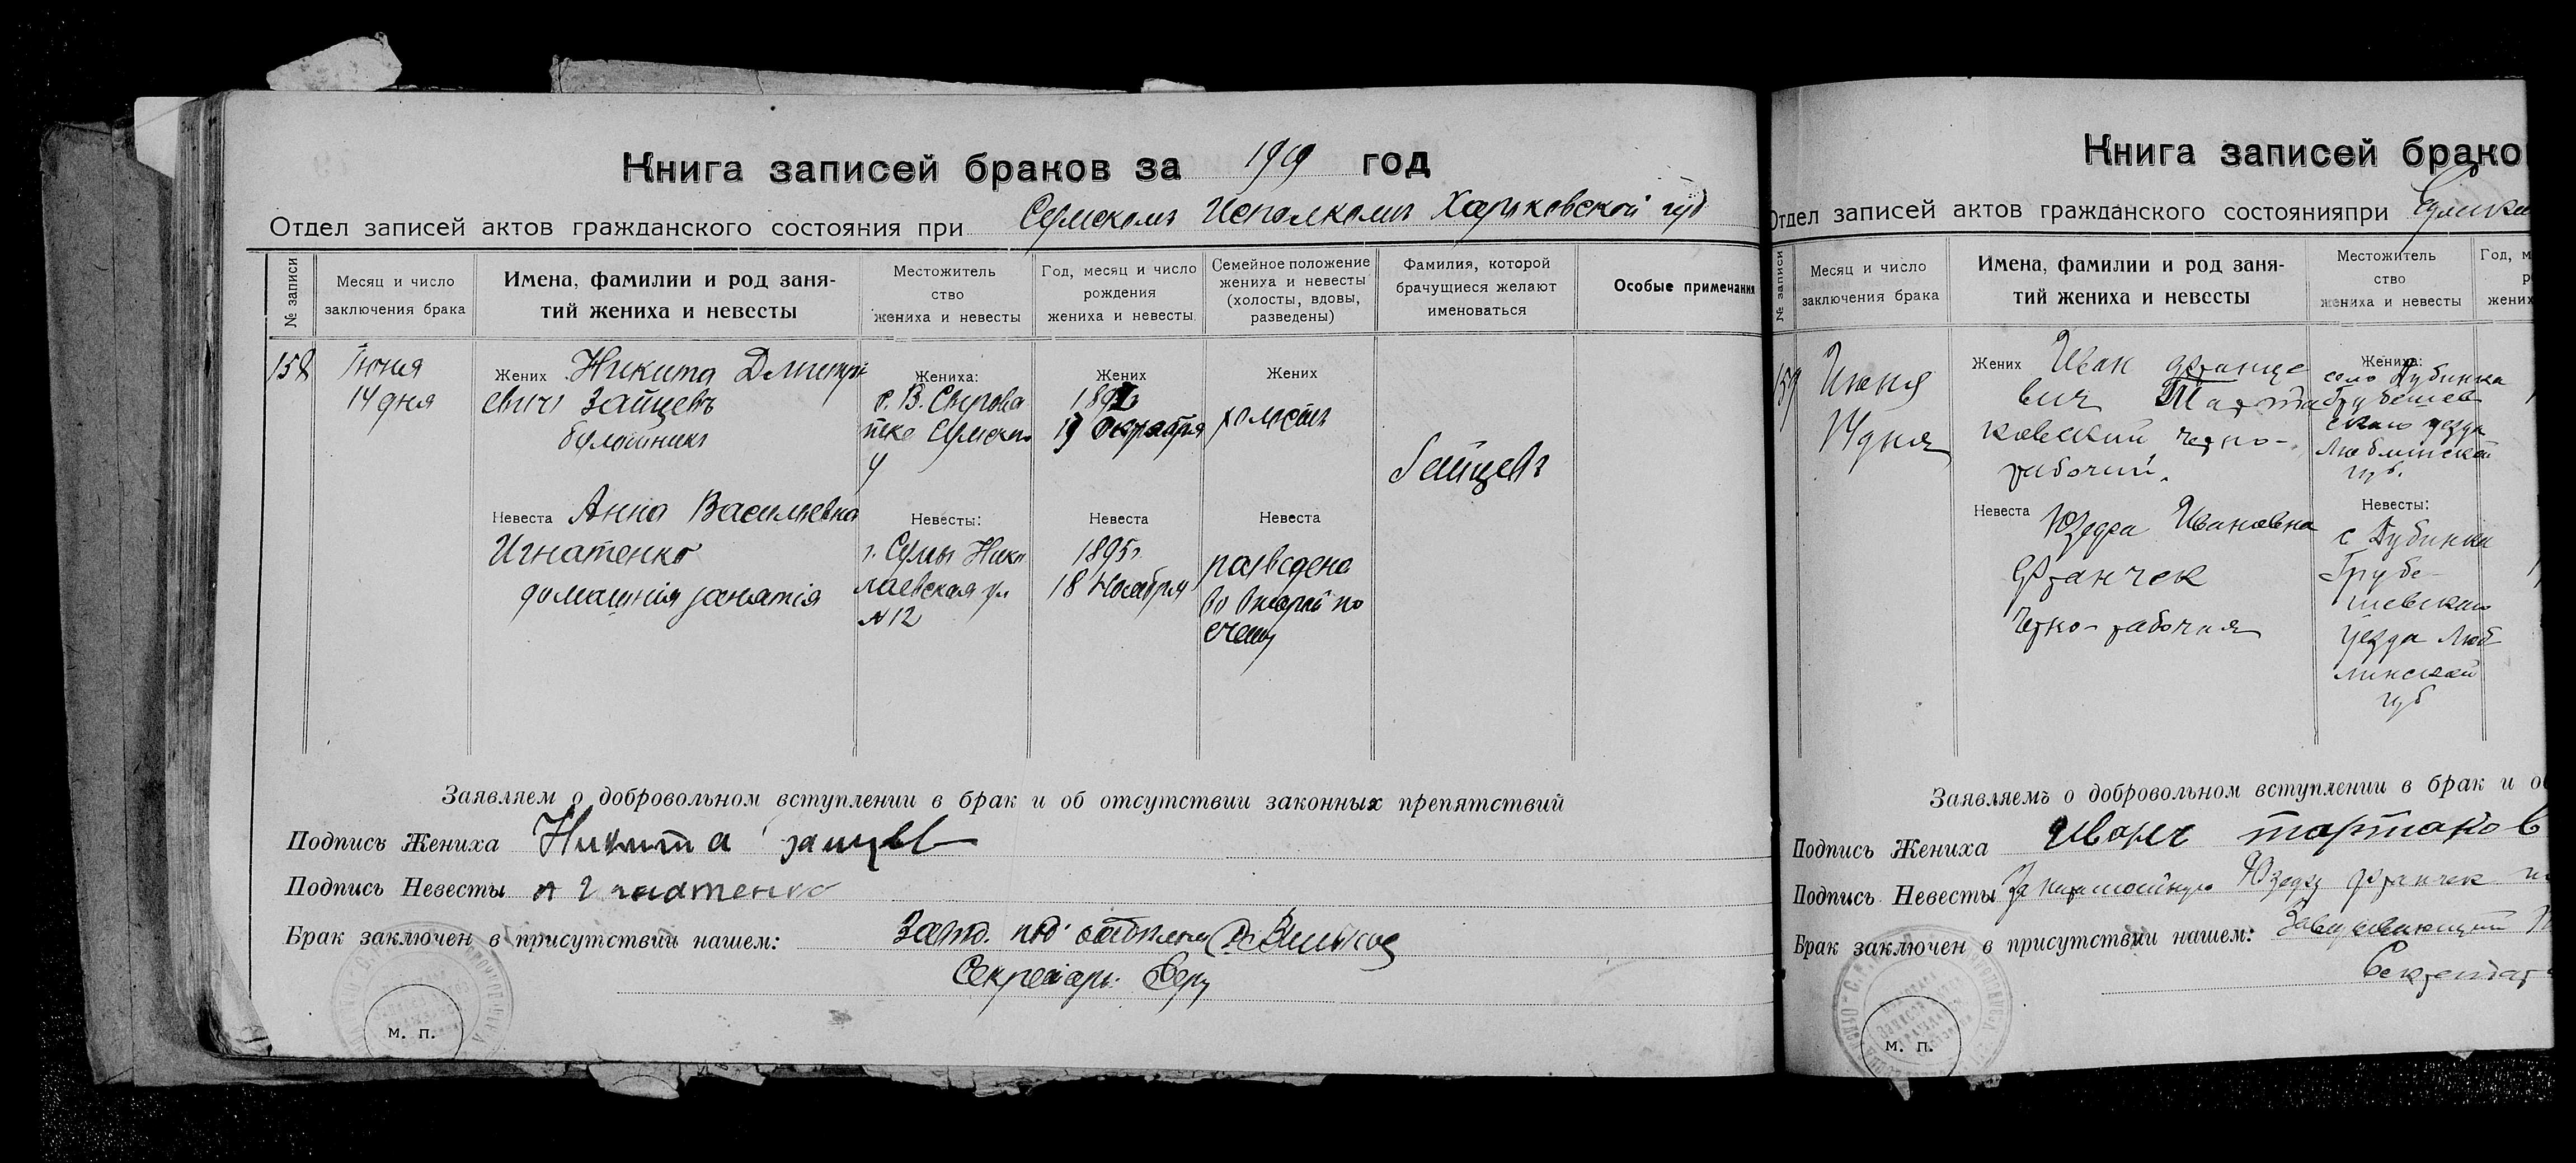 Книга записей браков за 1919 год
Отдел записей актов гражданского состояния при Сумскомъ Исполкомъ Харьковской губ
№ записи
Месяц и число
заключения брака
Имена, фамилии и род заня-
тий жениха и невесты
Местожитель
ство
жениха и невесты
Год, месяц и число
рождения
жениха и невесты
Семейное положение
жениха и невесты
(холосты, вдовы,
разведены)
Фамилия, которой
брачущиеся желают
именоваться
Особые примечания
158
Июня
14 дня
Жених Никита Дмитри
евичъ Зайцевъ
булошникъ
Жениха:
с. В. Сыровa
тка Сумского
у
Жених
189
19 Октября
Жених
холостъ
Зайцевъ
Невеста Анна Васильевна
Игнатенко
домашнія занятія
Невесты:
г. Сумы Нико
лаевская ул
№ 12
Невеста
1895г
18 Ноября
Невеста
разведена
во второй по
счету
Заявляем о добровольном вступлении в брак и об отсутствии законных препятствий
Подпись Жениха Никита Зайцев
Подпись Невесты А Игнатенко
Брак заключен в присутствии нашем:
Секретарь
м. п.
Книга записей брако
Отдел записей актов гражданского состоянияпри Сумском
№ записи
Месяц и число
заключения брака
Имена, фамилии и род заня-
тий жениха и невесты
Местожитель
ство
жениха и невесты
Год, м
р
жених
159
Июня
14 дня
Жених Иван Францe
вич Тарта
ковский черно-
рабочий.
Жениха:
село Дубинка
Грубешев
скаго уезда
Люблинской
губ.
Невеста Юзефа Ивановна
Франчек
Черно-рабочая
Невесты:
с Дубинки
Грубе-
шевскаго
Уезда Люб
линской
губ
Заявляемъ о добровольном вступлении в брак и об
Подпись Жениха Иванъ тартаков
Подпись Невесты За неграмотную Юзефу Франчек
Брак заключен в присутствии нашем: Заведывающий
Секретарь
м. п.